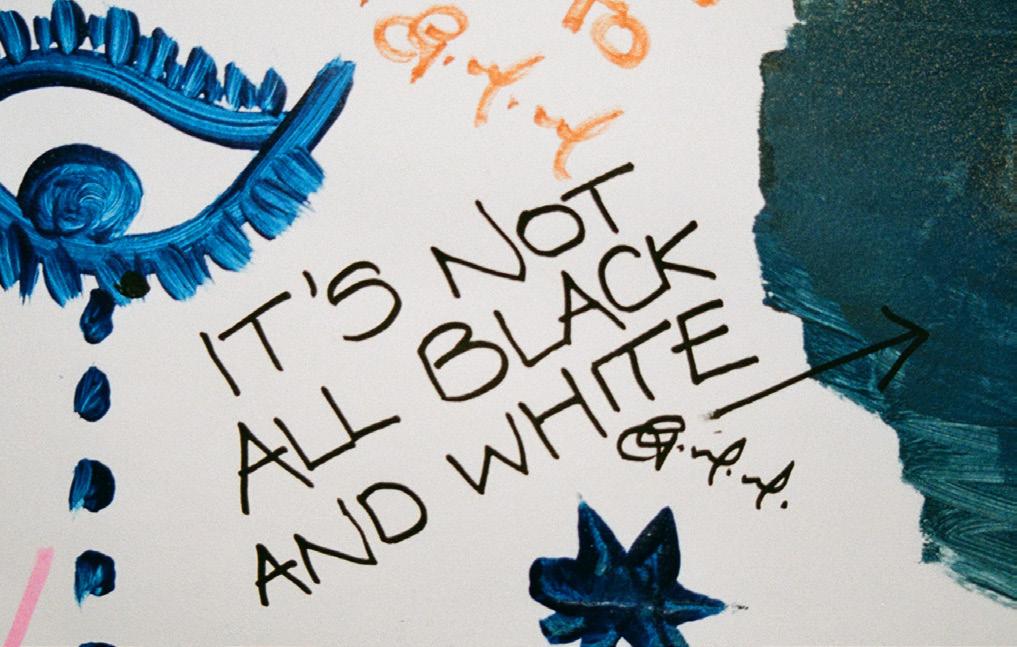 IT'S NOT
ALL BLACK
AND WHITE